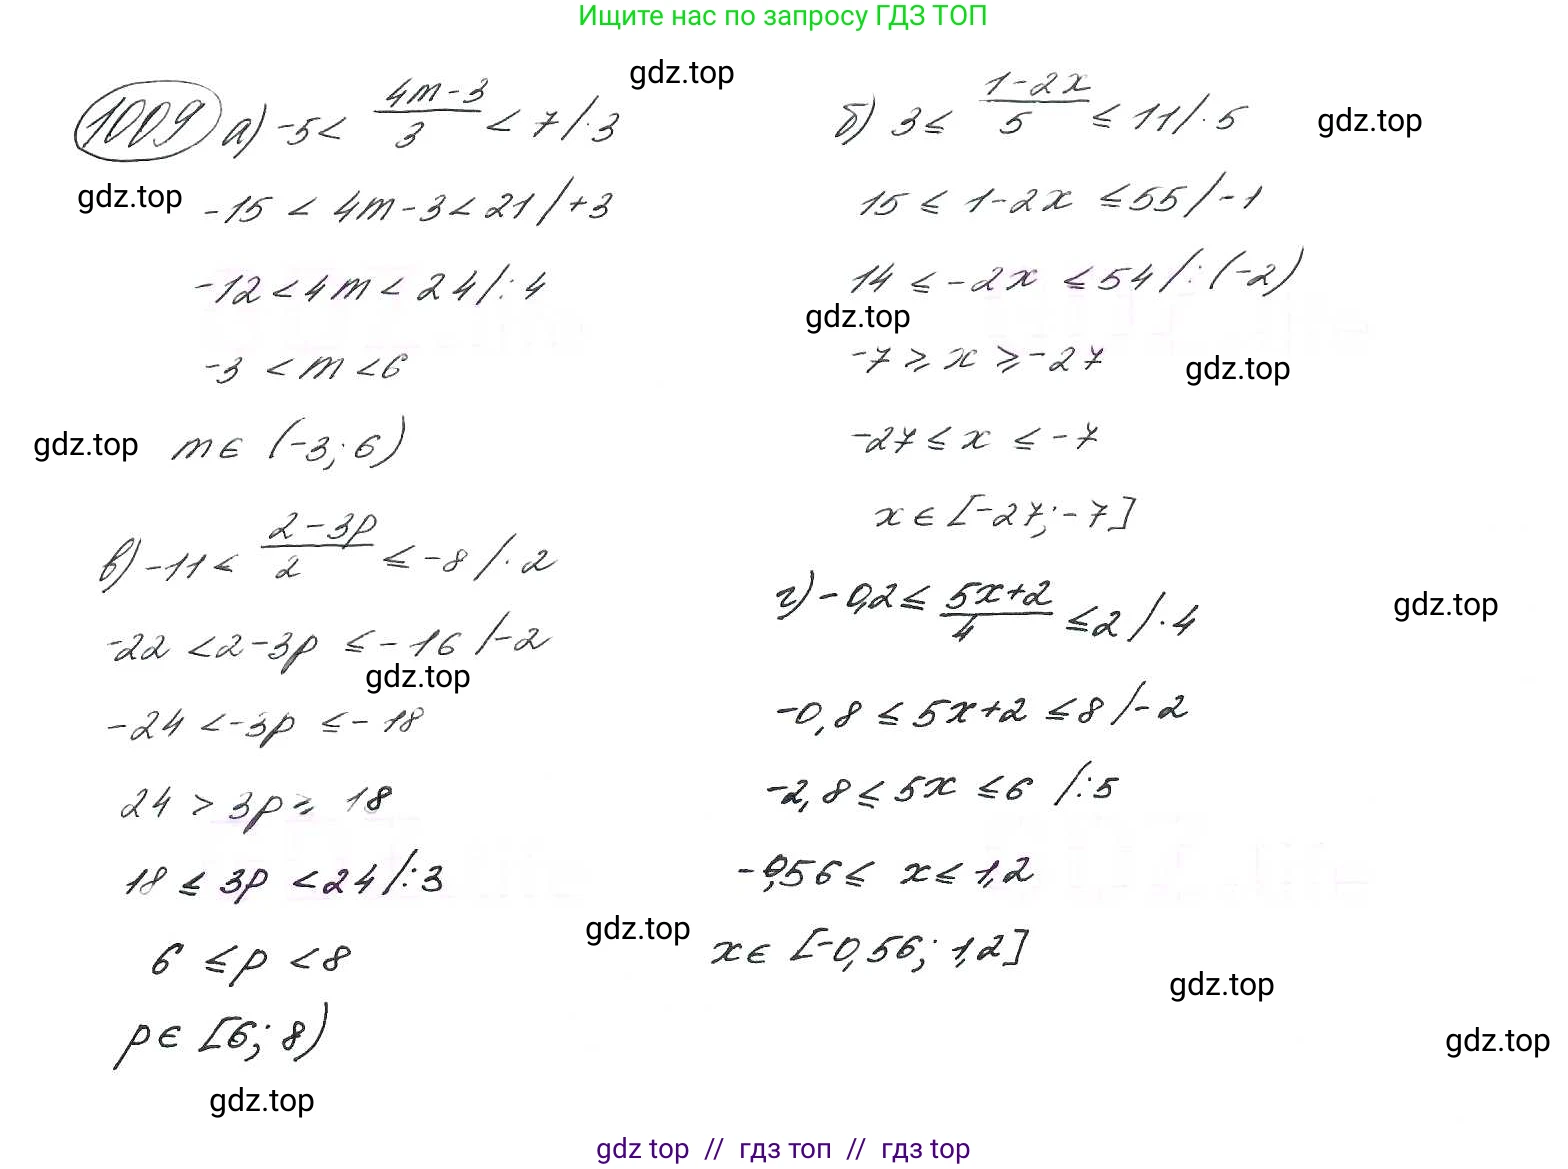 Ищите нас по запросу ГДЗ ТОП
gdz.top
1009 а) -5 < (4m-3)/3 < 7 /·3
gdz.top
-15 < 4m-3 < 21 /+3
-12 < 4m < 24 /:4
-3 < m < 6
gdz.top
m ∈ (-3; 6)
б) 3 ≤ (1-2x)/5 ≤ 11 /·5
gdz.top
15 ≤ 1-2x ≤ 55 /-1
14 ≤ -2x ≤ 54 /:(-2)
gdz.top
-7 ≥ x ≥ -27
gdz.top
-27 ≤ x ≤ -7
x ∈ [-27; -7]
в) -11 ≤ (2-3p)/2 ≤ -8 /·2
-22 < 2-3p ≤ -16 /-2
gdz.top
-24 < -3p ≤ -18
24 > 3p ≥ 18
18 ≤ 3p < 24 /:3
6 ≤ p < 8
p ∈ [6; 8)
gdz.top
г) -0,2 ≤ (5x+2)/4 ≤ 2 /·4
gdz.top
-0,8 ≤ 5x+2 ≤ 8 /-2
-2,8 ≤ 5x ≤ 6 /:5
-0,56 ≤ x ≤ 1,2
gdz.top
x ∈ [-0,56; 1,2]
gdz.top
gdz.top
gdz top // гдз топ // гдз top